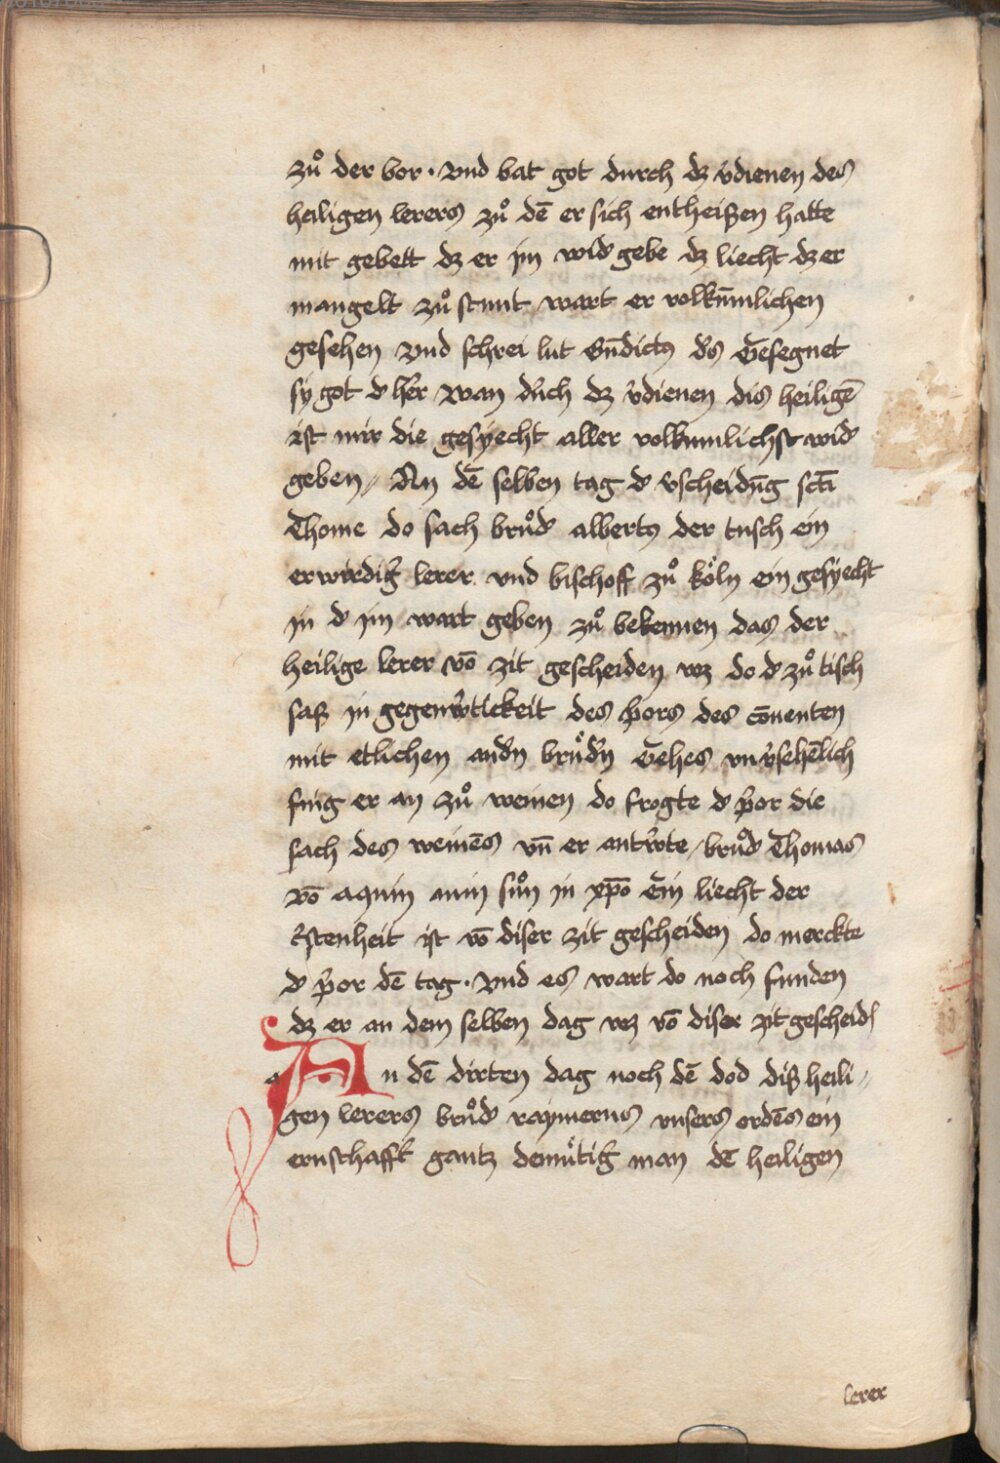 zuͦ der bor · vnd bat got durch dz v̉dienen des
heiligen lerers zuͦ dē er sich entheißen hatte
mit gebett dz er jm wid̉ gebe dz liecht dz er
mangelt zuͦ stunt wart er volkūmlichen
gesehen vnd schrei lut Bn̄dictꝰ ds̉ Gesegnet
sy got d̉ her̉ wan dur̉ch dz v̉dienen dis heiligē
ist mir die gesyecht aller volkumlichst wid̉
geben // An dē selben tag d̉ v̉scheidūg scti̅
Thome do sach bruͦd̉ albertꝰ der tusch ein
erwirdig̉ lerer vnd bischoff zuͦ koͤln ein gesyecht
jn d̉ jm wart geben zuͦ bekennen das der
heilige lerer vō zit gescheiden wz do d̉ zuͦ tisch
saß jn gegenw̉tickeit des p̉ors des cōuenten
mit etlichen and̉n bruͤd̉n Gehes vnv̉sehēlich
fing er an zuͦ weinen do frogte d̉ p̉or die
sach des weinēs vn̄ er antw̉te / bruͦd̉ Thomas
vō aquin min suͦn jn xp̄o Ein liecht der
c̉stenheit ist vō diser zit gescheiden do merckte
d̉ p̉or dē tag · vnd es wart do noch funden
dz er an dem selben dag wz vō diser zit gescheid̉
An dē dirten dag noch dē dod diß heili //
gen lerers bruͦd̉ raymerus vnsers ordēs ein
ernschafft gantz demuͤtig̉ man dē heiligen
lerer